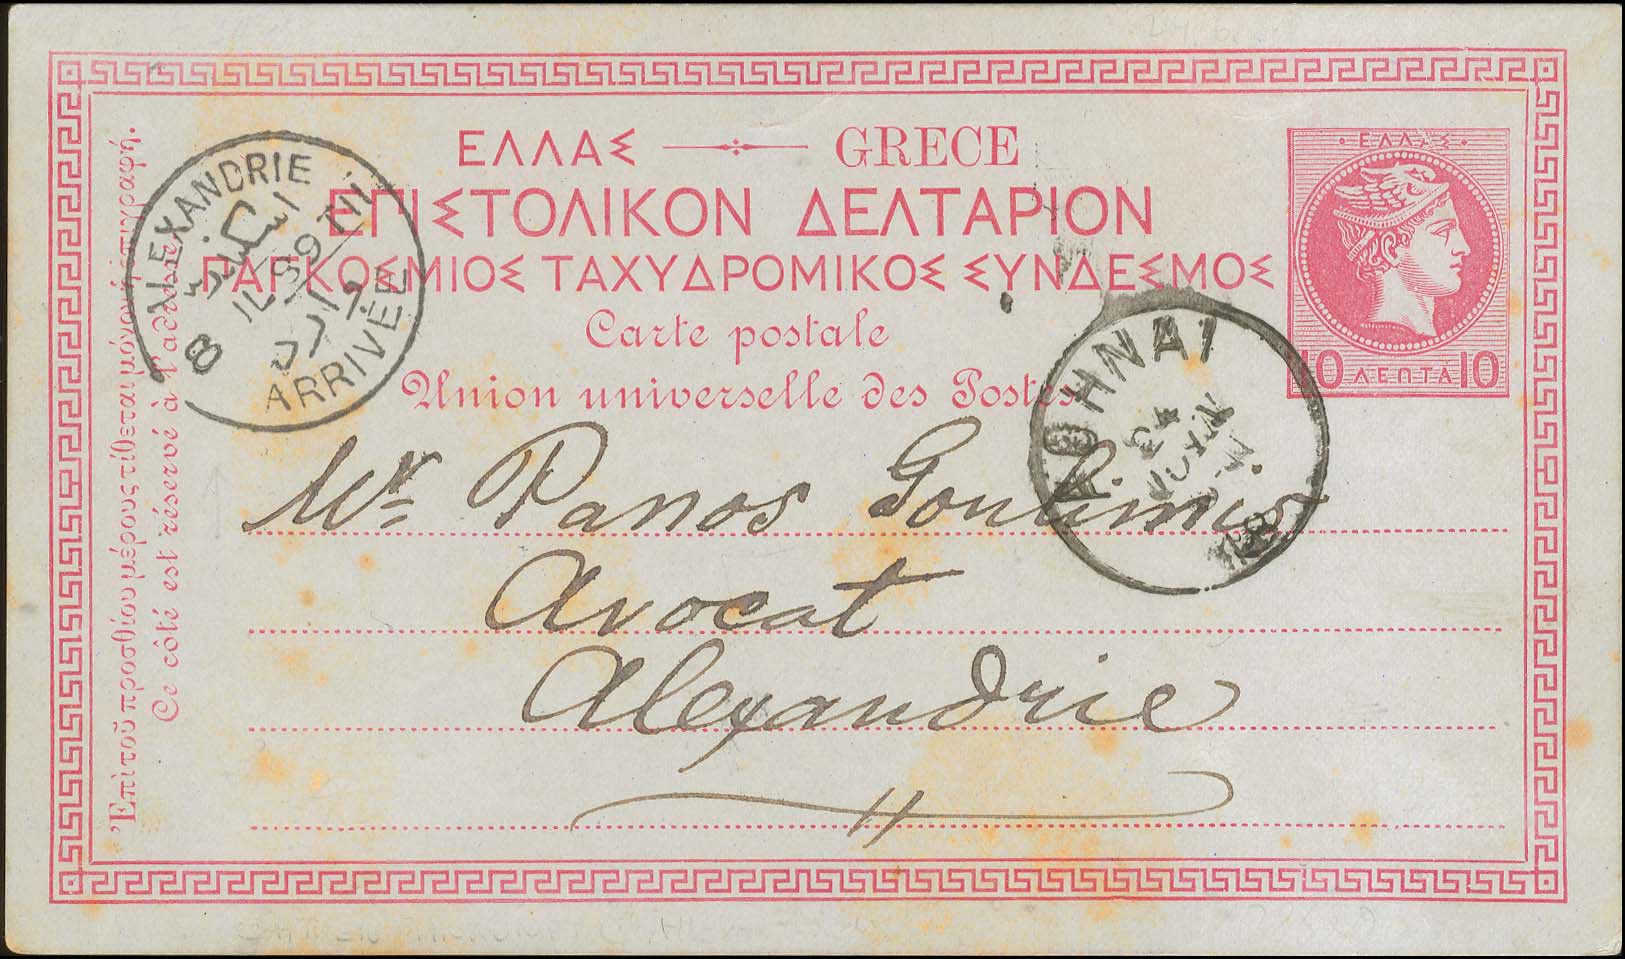 ΕΛΛΑΣ GRECE
ΕΠΙΣΤΟΛΙΚΟΝ ΔΕΛΤΑΡΙΟΝ
ΠΑΓΚΟΣΜΙΟΣ ΤΑΧΥΔΡΟΜΙΚΟΣ ΣΥΝΔΕΣΜΟΣ
Carte postale
Union universelle des Postes
ΕΛΛΑΣ
10 ΛΕΠΤΑ 10
ALEXANDRIE
8 JL 89 TIII
ARRIVÉE
ΑΘΗΝΑΙ
24
ΙΟΥΝ
Mr Panos Goulimis
Avocat
Alexandrie
Ἐπὶ τοῦ προσθίου μέρους τίθεται μόνον ἡ ἐπιγραφή.
Ce côté est réservé à l'adresse